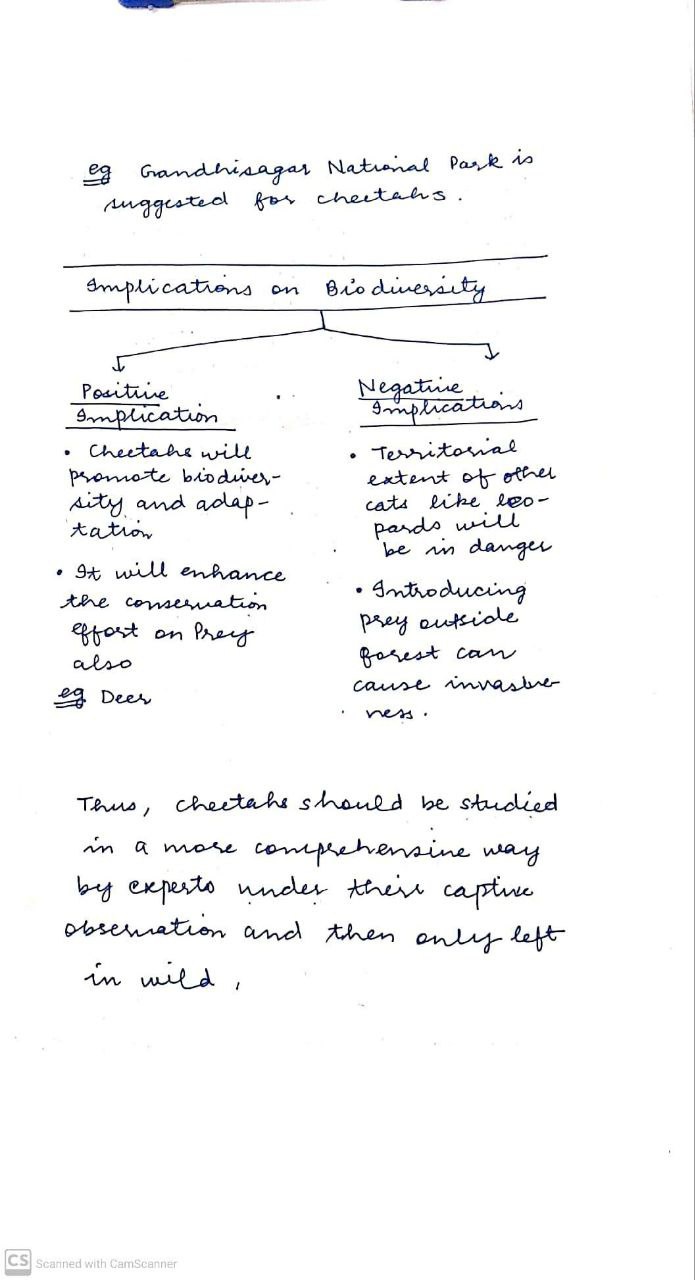 eg Gandhisagar National Park is
suggested for cheetahs.
Implications on Biodiversity
Positive
Implication
• Cheetahs will
promote biodiver-
sity and adap-
tation
• It will enhance
the conservation
effort on Prey
also
eg Deer
Negative
Implications
• Territorial
extent of other
cats like leo-
pards will
be in danger
• Introducing
prey outside
forest can
cause invasive-
ness.
Thus, cheetahs should be studied
in a more comprehensive way
by experts under their captive
observation and then only left
in wild,
CS Scanned with CamScanner